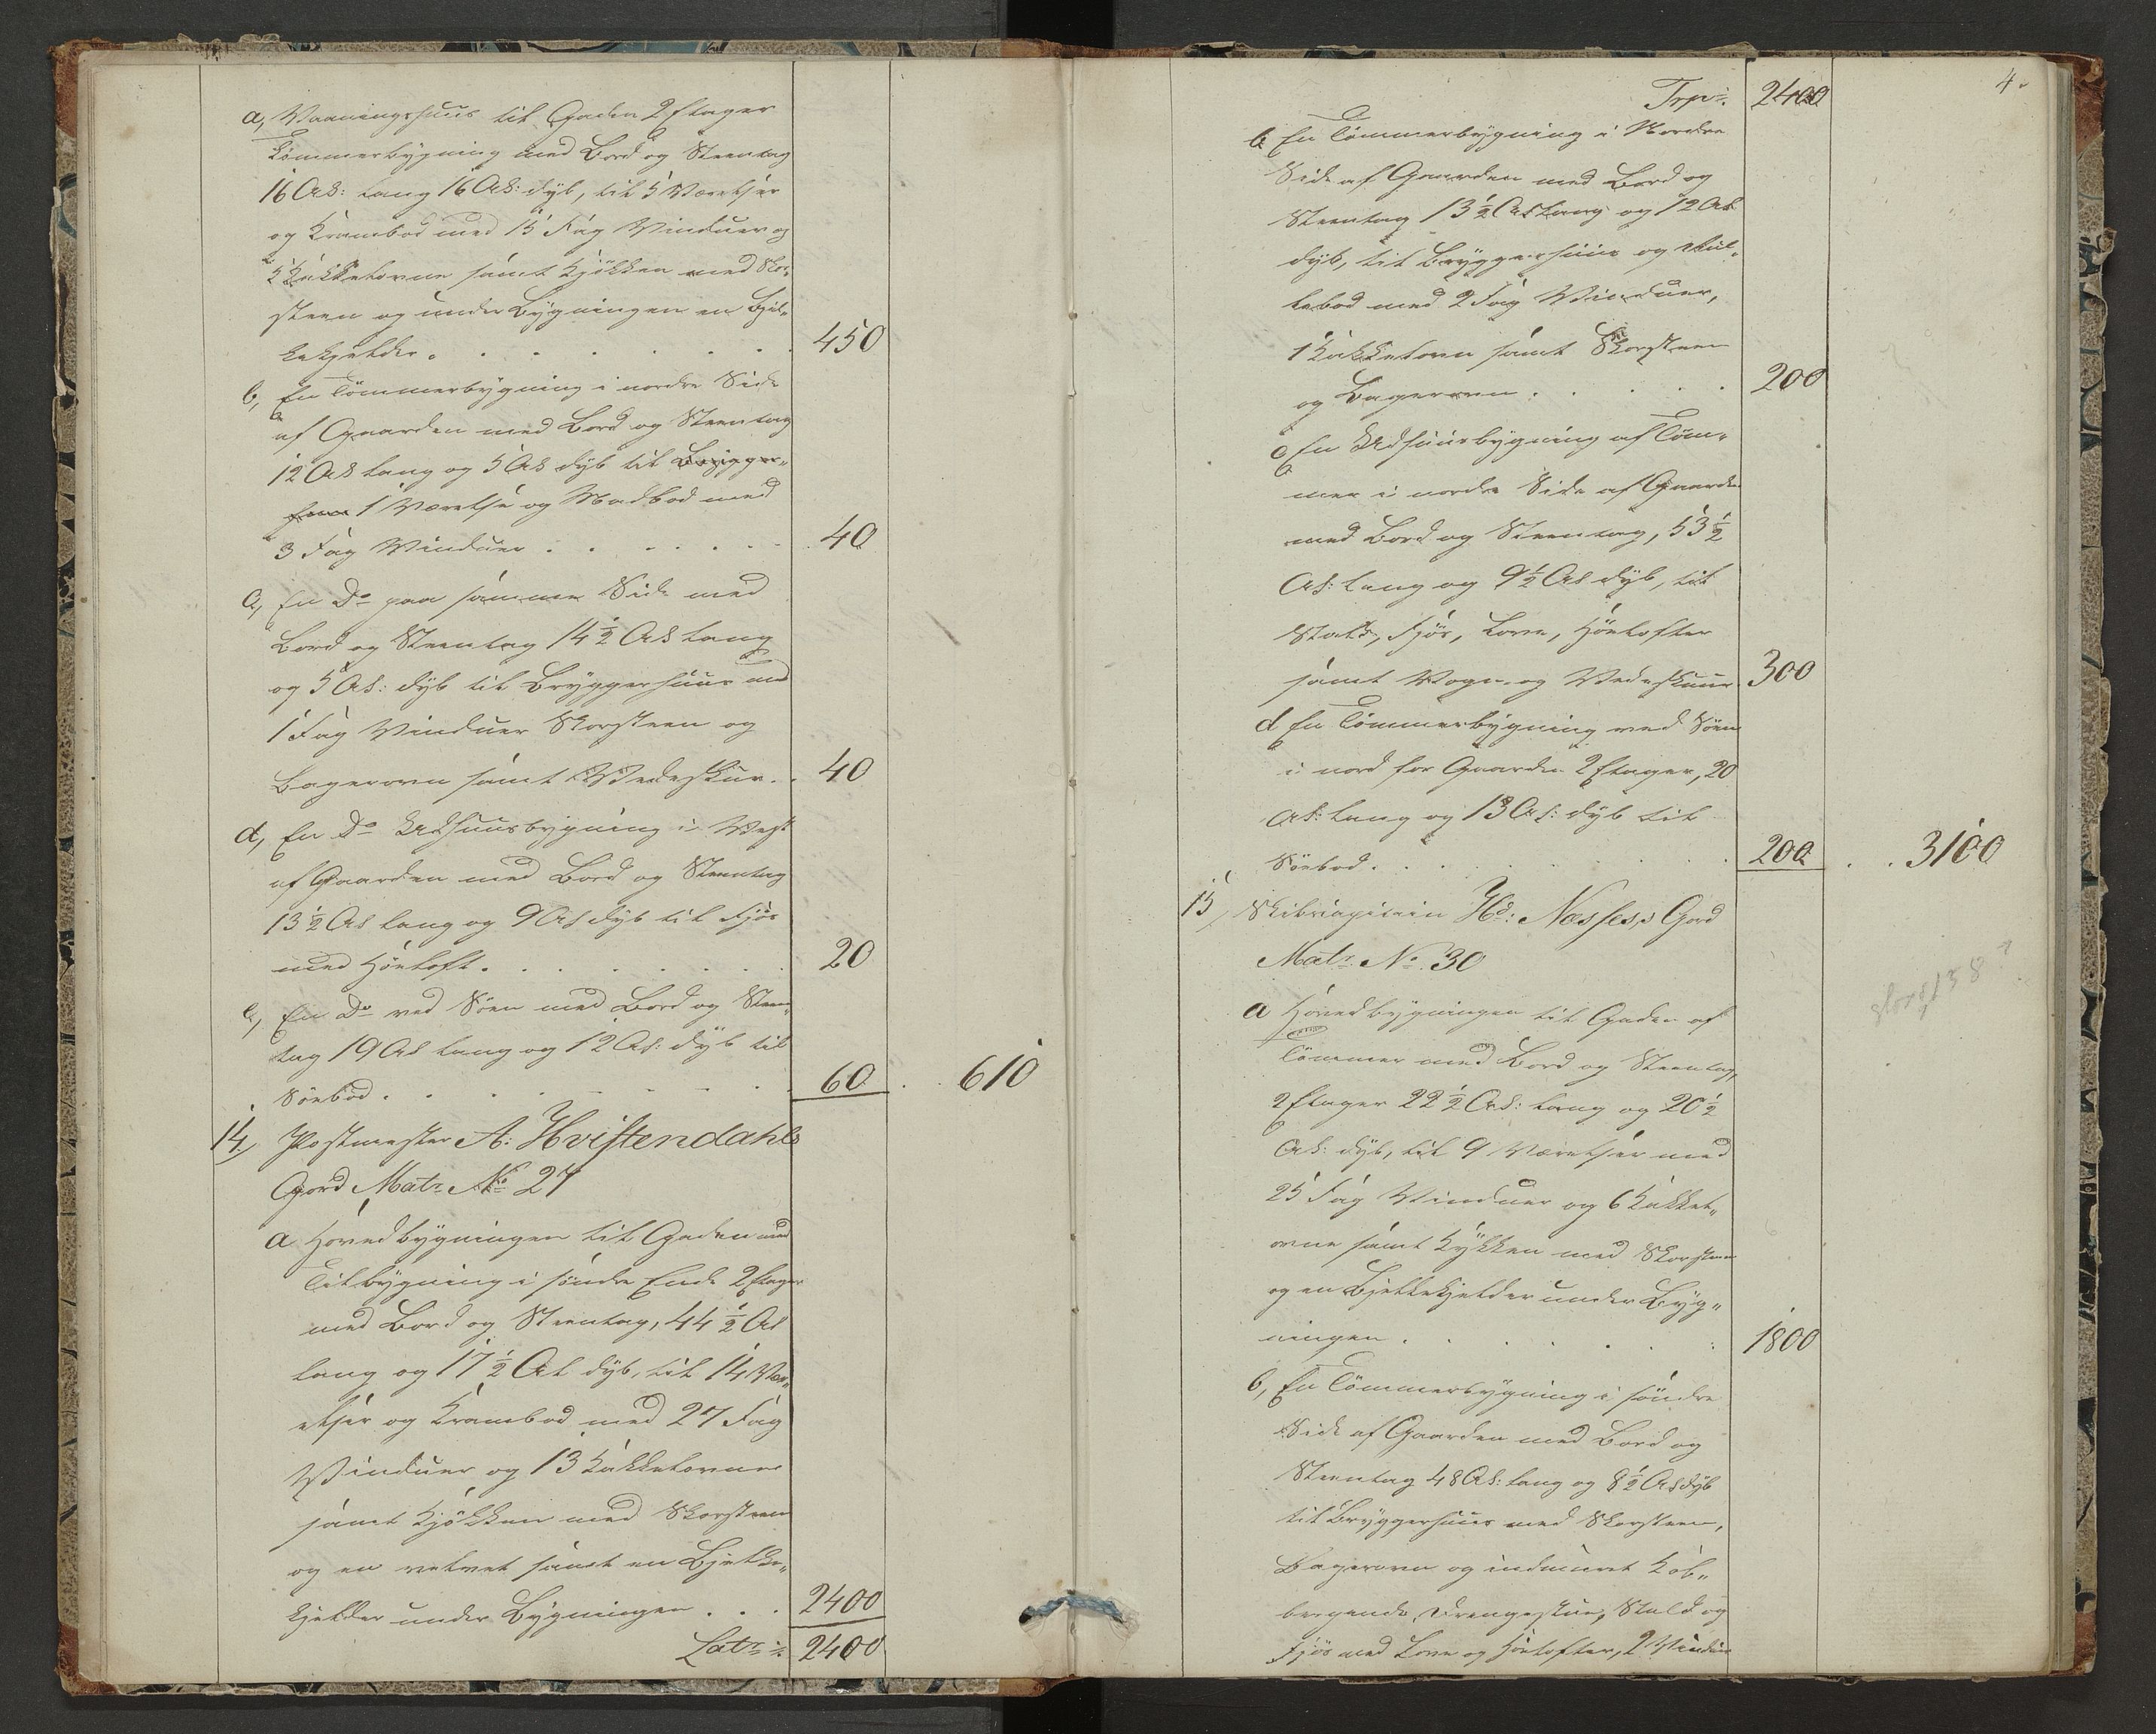 a, Vaaningshuus til Gaden 2 Etager
Tømmerbygning med Bord og Steentag
16 Al: lang 16 Al: dyb, til 5 Værelser
og Krambod med 15 Fag Vinduer og
5 Kakkelovne samt Kjøkken med Skor-
steen og under Bygningen en Bjel-
kekjelder . . . . . . . . 450
b, En Tømmerbygning i nordre Side
af Gaarden med Bord og Steentag
12 Al lang og 5 Al dyb til Brygger-
huus 1 Værelse og Madbod med
3 Fag Vinduer . . . . . . 40
c, En Do paa samme Side med
Bord og Steentag 14 1/2 Al lang
og 5 Al: dyb til Bryggerhuus med
1 Fag Vinduer Skorsteen og
Bagerovn samt Vedeskur . . 40
d, En Do Udhuusbygning i Vest
af Gaarden med Bord og Steentag
13 1/2 Al lang og 9 Al dyb til Fjøs
med Høeloft . . . . . . . 20
e, En Do ved Søen med Bord og Steen-
tag 19 Al lang og 12 Al: dyb til
Søebod . . . . . . . 60 . . 610
14, Postmester A: Hvistendahls
Gord Matr. No 27
a Hovedbygningen til Gaden med
Tilbygning i søndre Ende 2 Etager
med Bord og Steentag, 44 1/2 Al
lang og 17 1/2 Al dyb, til 14 Vær-
elser og Krambod med 27 Fag
Vinduer og 13 Kakkelovne
samt Kjøkken med Skorsteen
og en velvet samt en Bjelke-
kjelder under Bygningen . . . 2400
Latr 2400
4.
Trp. 2400
b En Tømmerbygning i Nordre
Side af Gaarden med Bord og
Steentag 13 1/2 Al lang og 12 Al
dyb, til Bryggerhuus og Rul-
lebod med 2 Fag Vinduer,
1 Kakkelovn samt Skorsteen
og Bagerovn . . . . . 200
c En Udhuusbygning af Tøm-
mer i nordre Side af Gaarden
med Bord og Steentag, 53 1/2
Al: lang og 9 1/2 Al dyb, til
Stald, Fjøs, Love, Høelofter
samt Vogn- og Vedeskuur 300
d En Tømmerbygning ved Søen
i nord for Gaarden 2 Etager, 20
Al: lang og 13 Al: dyb til
Søebod . . . . . . . 200 . . 3100
15, Skibscapitain Hd: Næsses's Gord
Matr. No. 30
a Hovedbygningen til Gaden af
Tømmer med Bord og Steentag,
2 Etager 22 1/2 Al: lang og 20 1/2
Al: dyb, til 9 Værelser med
25 Fag Vinduer og 6 Kakkel-
ovne samt Kjøkken med Skorsteen
og en Bjelkekjelder under Byg-
ningen . . . . . . 1800
b, En Tømmerbygning i søndre
Side af Gaarden med Bord og
Steentag 48 Al: lang og 8 1/2 Al dyb
til Bryggerhuus med Skorsteen,
Bagerovn og indmuret Kob-
bergryde, Drengestue, Stald og
Fjøs med Love og Høelofter, 2 Vinduer